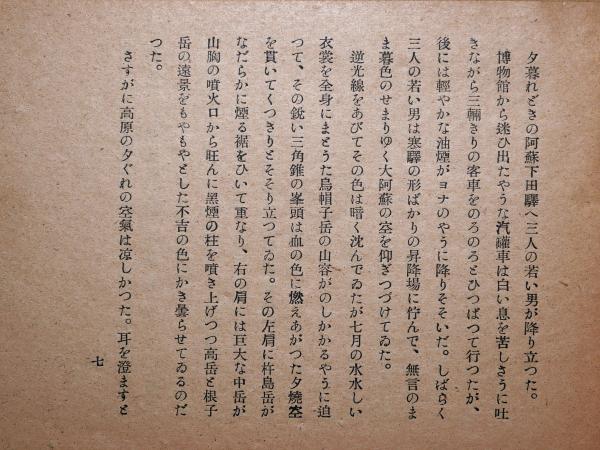 夕暮れどきの阿蘇下田驛へ三人の若い男が降り立つた。
博物館から迷ひ出たやうな汽罐車は白い息を苦しさうに吐
きながら三輛きりの客車をのろのろとひつぱつて行つたが、
後には輕やかな油煙がヨナのやうに降りそそいだ。しばらく
三人の若い男は寒驛の形ばかりの昇降場に佇んで、無言のま
ま暮色のせまりゆく大阿蘇の空を仰ぎつづけてゐた。
逆光線をあびてその色は暗く沈んでゐたが七月の水水しい
衣裳を全身にまとうた烏帽子岳の山容がのしかかるやうに迫
つて、その鋭い三角錐の峯頭は血の色に燃えあがつた夕燒空
を貫いてくつきりとそそり立つてゐた。その左肩に杵島岳が
なだらかに煙る裾をひいて重なり、右の肩には巨大な中岳が
山胸の噴火口から旺んに黑煙の柱を噴き上げつつ高岳と根子
岳の遠景をもやもやとした不吉の色にかき曇らせてゐるのだ
つた。
さすがに高原の夕ぐれの空氣は凉しかつた。耳を澄ますと
七